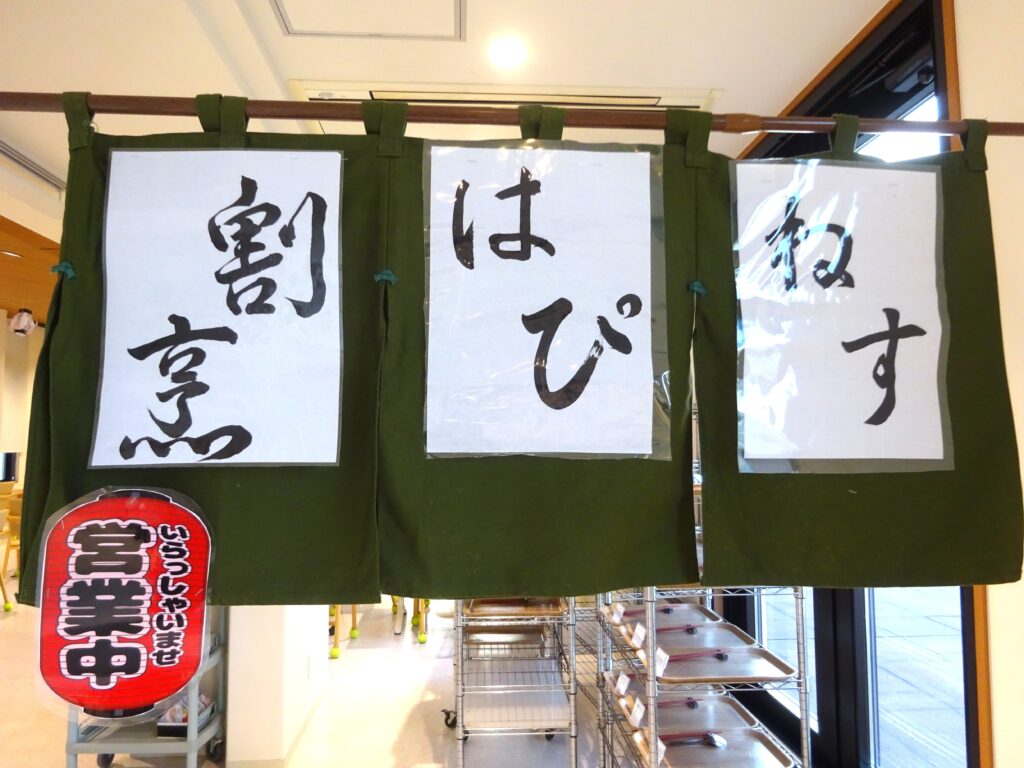 割烹
はぴ
ねす
いらっしゃいませ
営業中